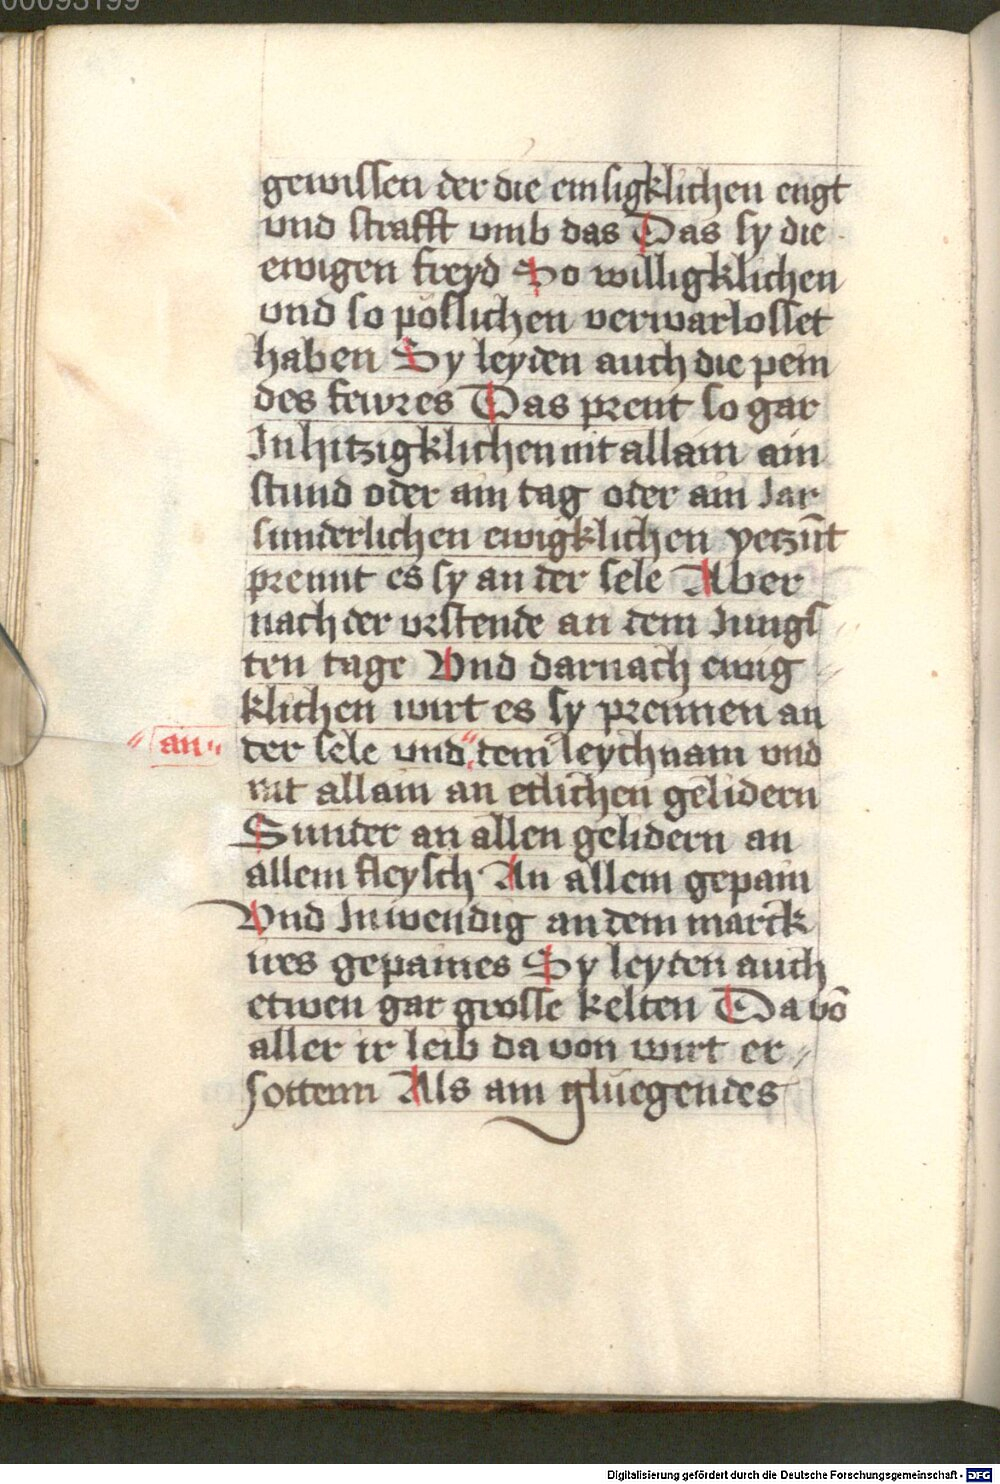 00093199
gewissen der die emsigklichen engt
und strafft umb das Das sy die
ewigen freyd So willigklichen
und so pöslichen verwarlosset
haben Sy leyden auch die pein
des fewres Das prent so gar
Inhitzigklichen nit allain ain
stund oder ain tag oder ain Jar
sunderlichen ewigklichen yetzūt
prennt es sy an der sele Aber
nach der urstende an dem Jungs
ten tage Und darnach ewig
klichen wirt es sy prennen an
der sele und dem leychnam und
an
nit allain an etlichen gelidern
Sunder an allen gelidern an
allem fleysch An allem gepain
Und Inwendig an dem marck
ires gepaines Sy leyden auch
etwen gar grosse kelten Da vō
aller ir leib da von wirt er
sottenn Als ain gluegendes
Digitalisierung gefördert durch die Deutsche Forschungsgemeinschaft - DFG